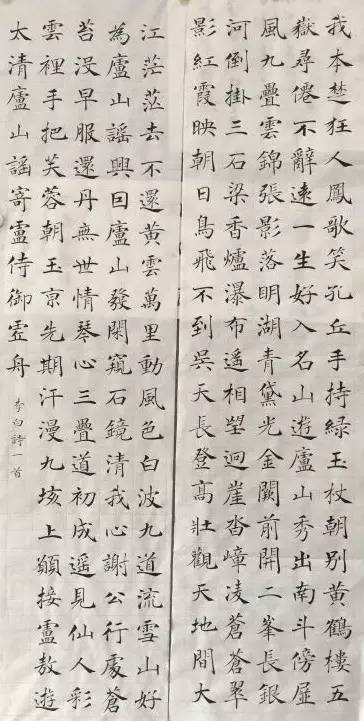 我本楚狂人鳳歌笑孔丘手持綠玉杖朝別黃鶴樓五
嶽尋僊不辭遠一生好入名山遊廬山秀出南斗傍屏
風九疊雲錦張影落明湖青黛光金闕前開二峯長銀
河倒掛三石梁香爐瀑布遙相望迴崖沓嶂凌蒼蒼翠
影紅霞映朝日鳥飛不到吳天長登高壯觀天地間大
江茫茫去不還黃雲萬里動風色白波九道流雪山好
為廬山謠興因廬山發閑窺石鏡清我心謝公行處蒼
苔沒早服還丹無世情琴心三疊道初成遥見仙人彩
雲裡手把芙蓉朝玉京先期汗漫九垓上願接盧敖遊
太清廬山謠寄盧侍御虛舟
李白詩一首